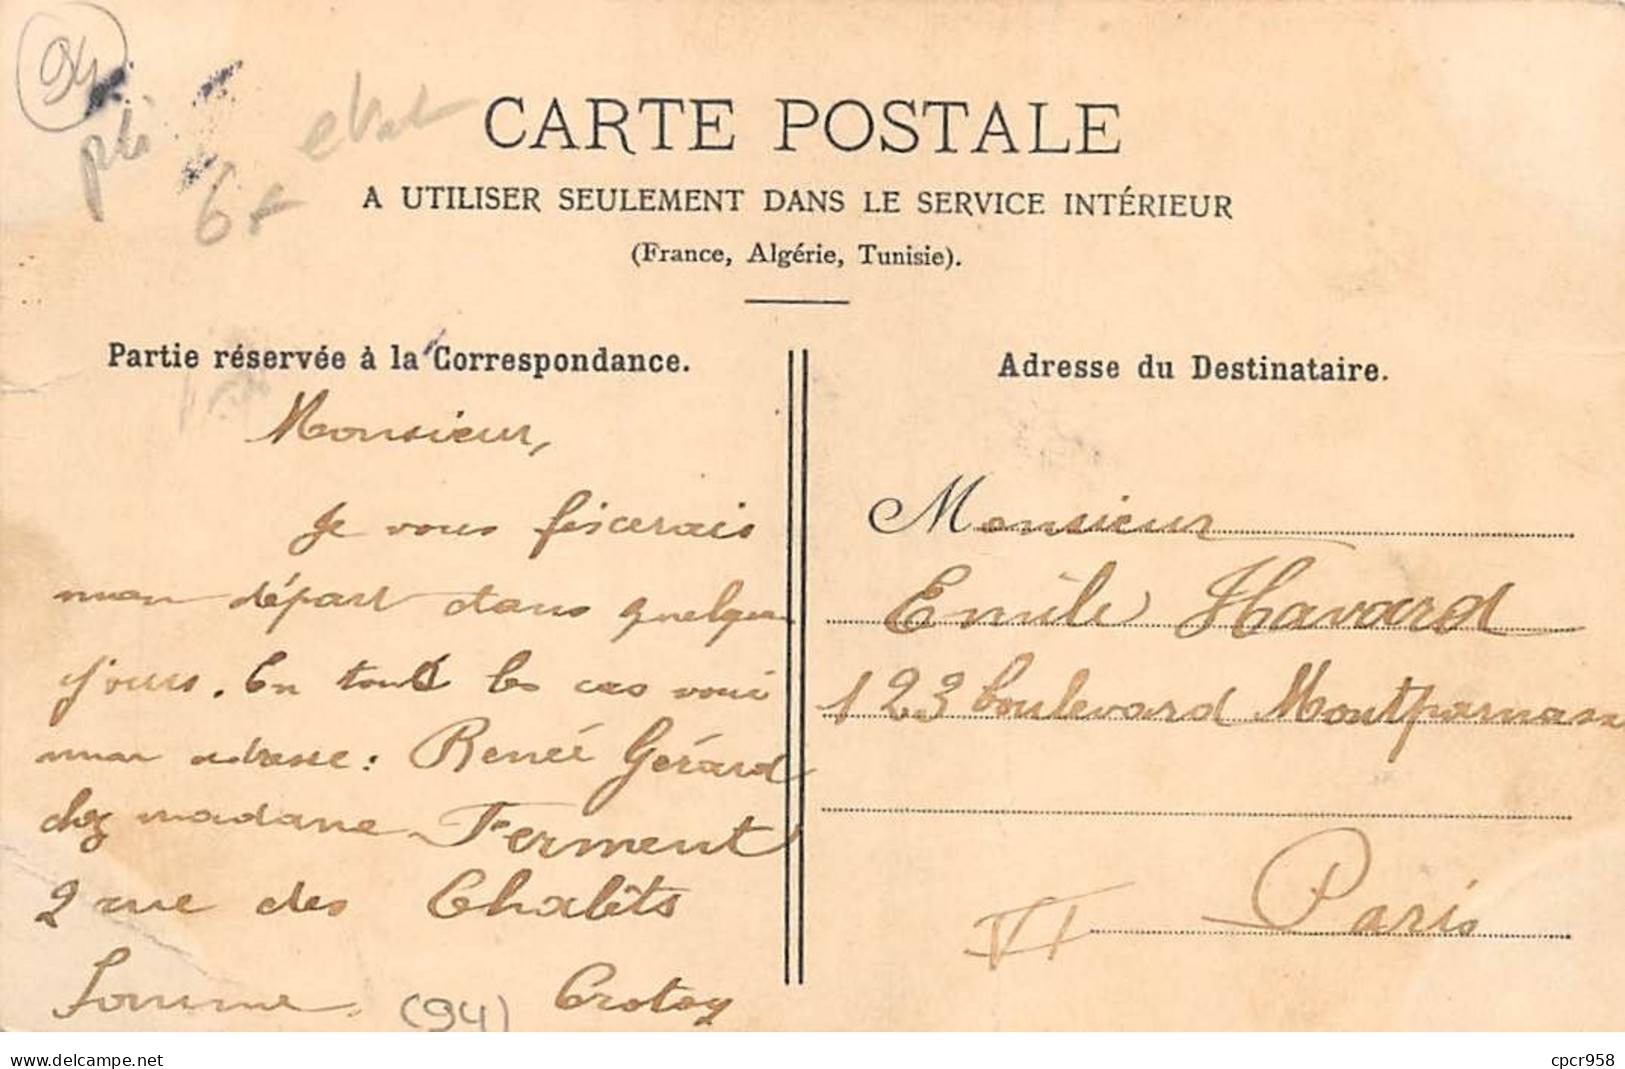 94
pli
6f
CARTE POSTALE
A UTILISER SEULEMENT DANS LE SERVICE INTÉRIEUR
(France, Algérie, Tunisie).
Partie réservée à la Correspondance.
Monsieur,
Je vous fiscerais
mon départ dans quelque
jours. En tout les cas voici
mon adresse : Renée Gérard
chez madame Ferment
2 rue des Chalêts
Somme. Crotoy
(94)
Adresse du Destinataire.
Monsieur
Emile Havard
123 boulevard Montparnasse
Paris
VI
www.delcampe.net
cpcr958